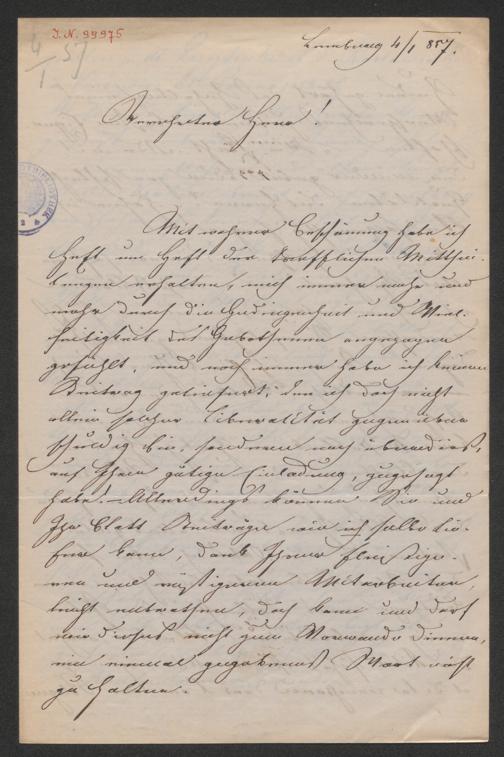 I.N. 99975
4/1 57
Lemberg 4/1 857.
Verehrter Herr!
Mit wahrer Beschämung habe ich
Heft um Heft der trefflichen Mitthei-
lungen erhalten, mich immer mehr und
mehr durch die Gediegenheit und Viel-
seitigkeit des Gebothenen angezogen
gefühlt, und noch immer habe ich keinen
Beitrag geliefert, den ich doch nicht
allein solcher Liberalität gegenüber
schuldig bin, sondern noch überdies,
auf Ihre gütige Einladung, zugesagt
habe! – Allerdings können Sie und
Ihr Blatt Beiträge wie ich selbe lie-
fern kann, dank Ihrer fleißige-
ren und rüstigeren Mitarbeiter,
leicht entrathen, doch kann und darf
mir dieses nicht zum Vorwande dienen,
ein einmal gegebenes Wort nicht
zu halten.